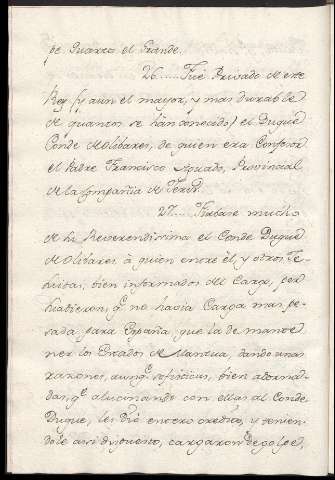 pe Quarto el Grande.
26......Fué Privado de este
Rey (y aun el mayor, y mas durable
de quantos se han conocido) el Duque
Conde de Olibares, de quien era Confesor
el Padre Francisco Aguado, Provincial
de la Compañia de Jesus.
27......Fiabase mucho
de su Reverendisima el Conde Duque
de Olibares à quien entre él, y otros Je-
suitas, bien informados del Cargo, per
suadieron, q.e no havia Carga mas pe-
sada para España, que la de mante
ner los Estados de Mantua, dando unas
razones, aunq.e sofisticas, bien adorna-
das, q.e alucinando con ellas al Conde
Duque, les dió entero credito, y tenien-
dole asi dispuesto, cargaron de golpe,